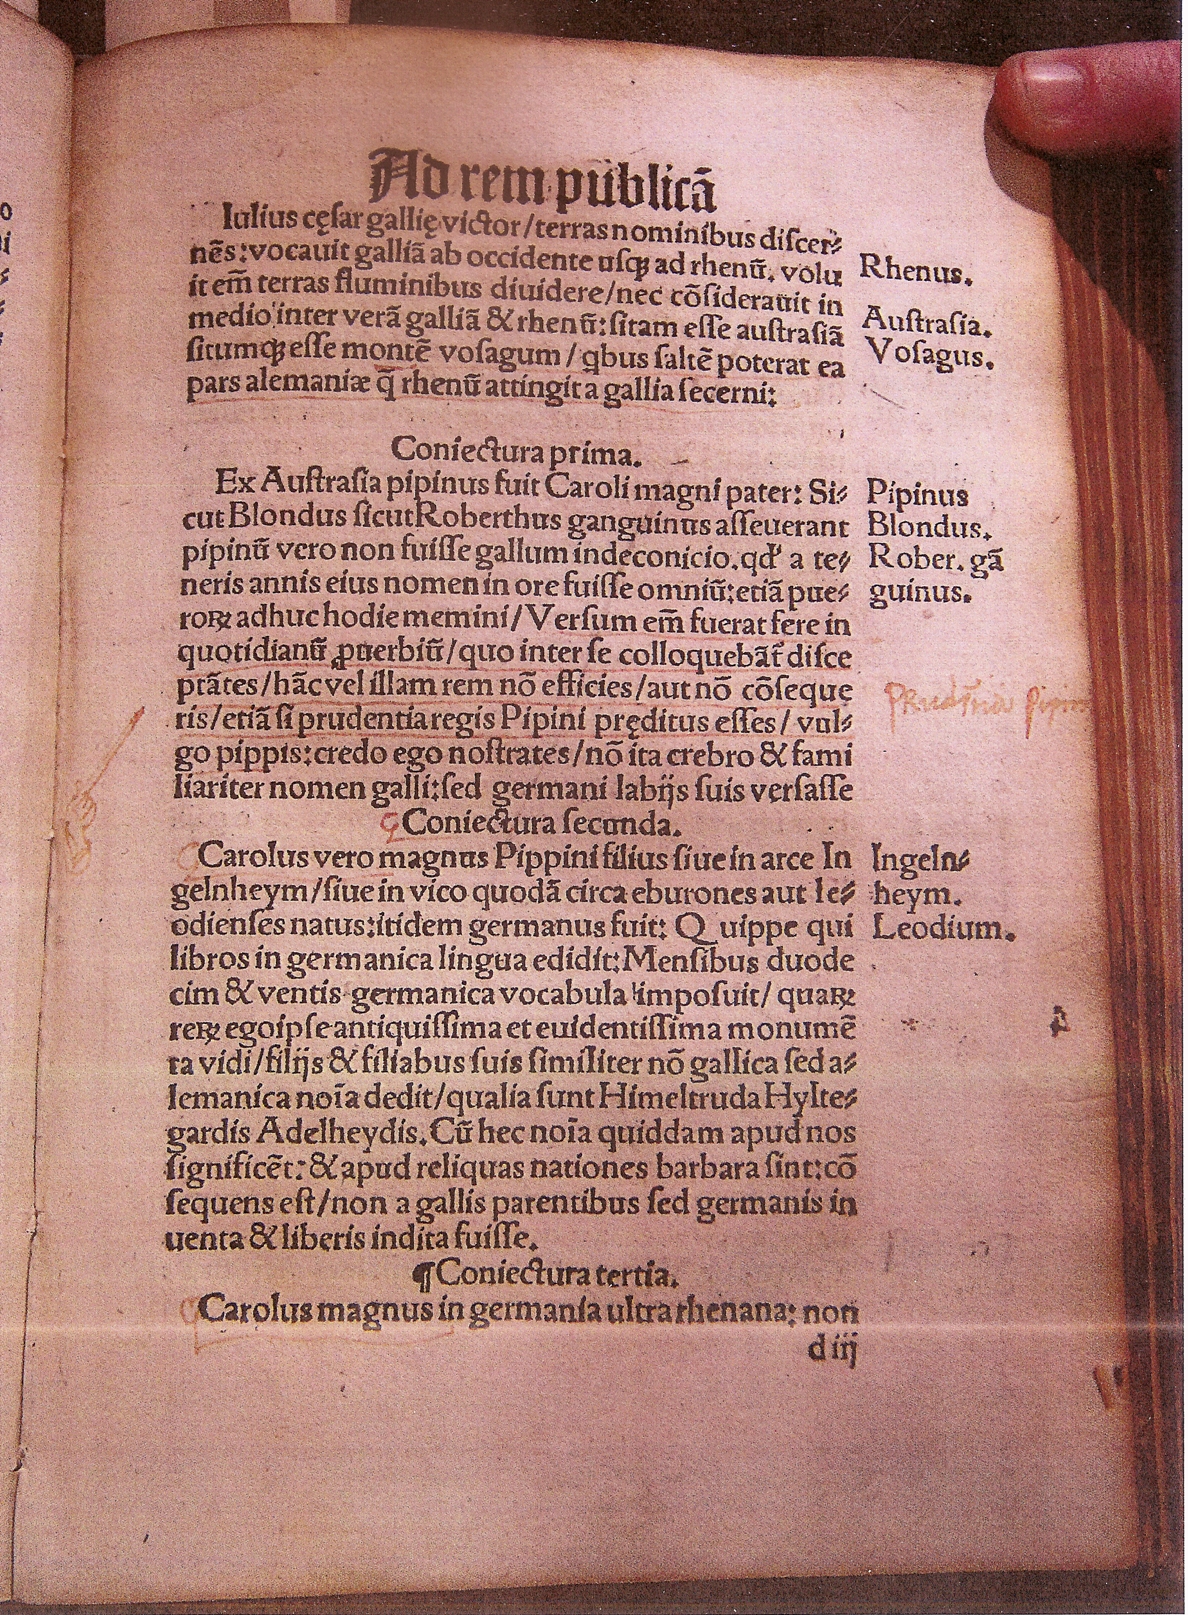 Ad rem publicā
Iulius cęsar gallię victor/terras nominibus discer⸗
nēs:vocauit galliā ab occidente usqꝫ ad rhenū. volu
it em̄ terras fluminibus diuidere/nec cōsiderauit in
medio inter verā galliā & rhenū:sitam esse austrasiā
situmqꝫ esse montē vosagum/qbus saltē poterat ea
pars alemaniæ q̄ rhenū attingit a gallia secerni:
Rhenus.
Austrasia.
Vosagus.
Coniectura prima.
Ex Austrasia pipinus fuit Caroli magni pater: Si⸗
cut Blondus sicut Roberthus ganguinus asseuerant
pipinū vero non fuisse gallum inde conicio.qd' a te⸗
neris annis eius nomen in ore fuisse omniū:etiā pue⸗
roꝝ adhuc hodie memini/Versum em̄ fuerat fere in
quotidianū ꝓuerbiū/quo inter se colloquebāt̄ disce
ptātes/hāc vel illam rem nō efficies/aut nō cōseque
ris/etiā si prudentia regis Pipini pręditus esses/vul⸗
go pippis:credo ego nostrates/nō ita crebro & fami
liariter nomen galli:sed germani labijs suis versasse
Pipinus
Blondus.
Rober. gā
guinus.
Prudn̄tia Pipini
Coniectura secunda.
Carolus vero magnus Pippini filius siue in arce In
gelnheym/siue in vico quodā circa eburones aut le⸗
odienses natus:itidem germanus fuit: Quippe qui
libros in germanica lingua edidit:Mensibus duode
cim & ventis germanica vocabula imposuit/quaꝝ
reꝝ ego ipse antiquissima et euidentissima monumē
ta vidi/filijs & filiabus suis similiter nō gallica sed a⸗
lemanica noīa dedit/qualia sunt Himeltruda Hylte⸗
gardis Adelheydis. Cū hec noīa quiddam apud nos
significēt:& apud reliquas nationes barbara sint:cō
sequens est/non a gallis parentibus sed germanis in
uenta & liberis indita fuisse.
Ingeln⸗
heym.
Leodium.
¶Coniectura tertia.
Carolus magnus in germania ultra rhenana: non
d iij